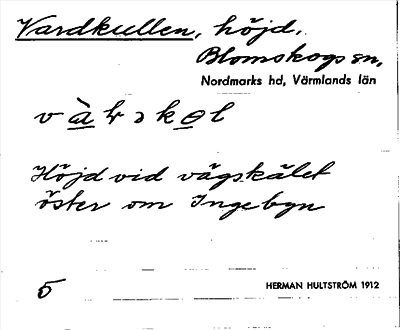 Vardkullen, höjd,
Blomskogs sn,
Nordmarks hd, Värmlands län
Höjd vid vägskälet
öster om Ingebyn
5
HERMAN HULTSTRÖM 1912